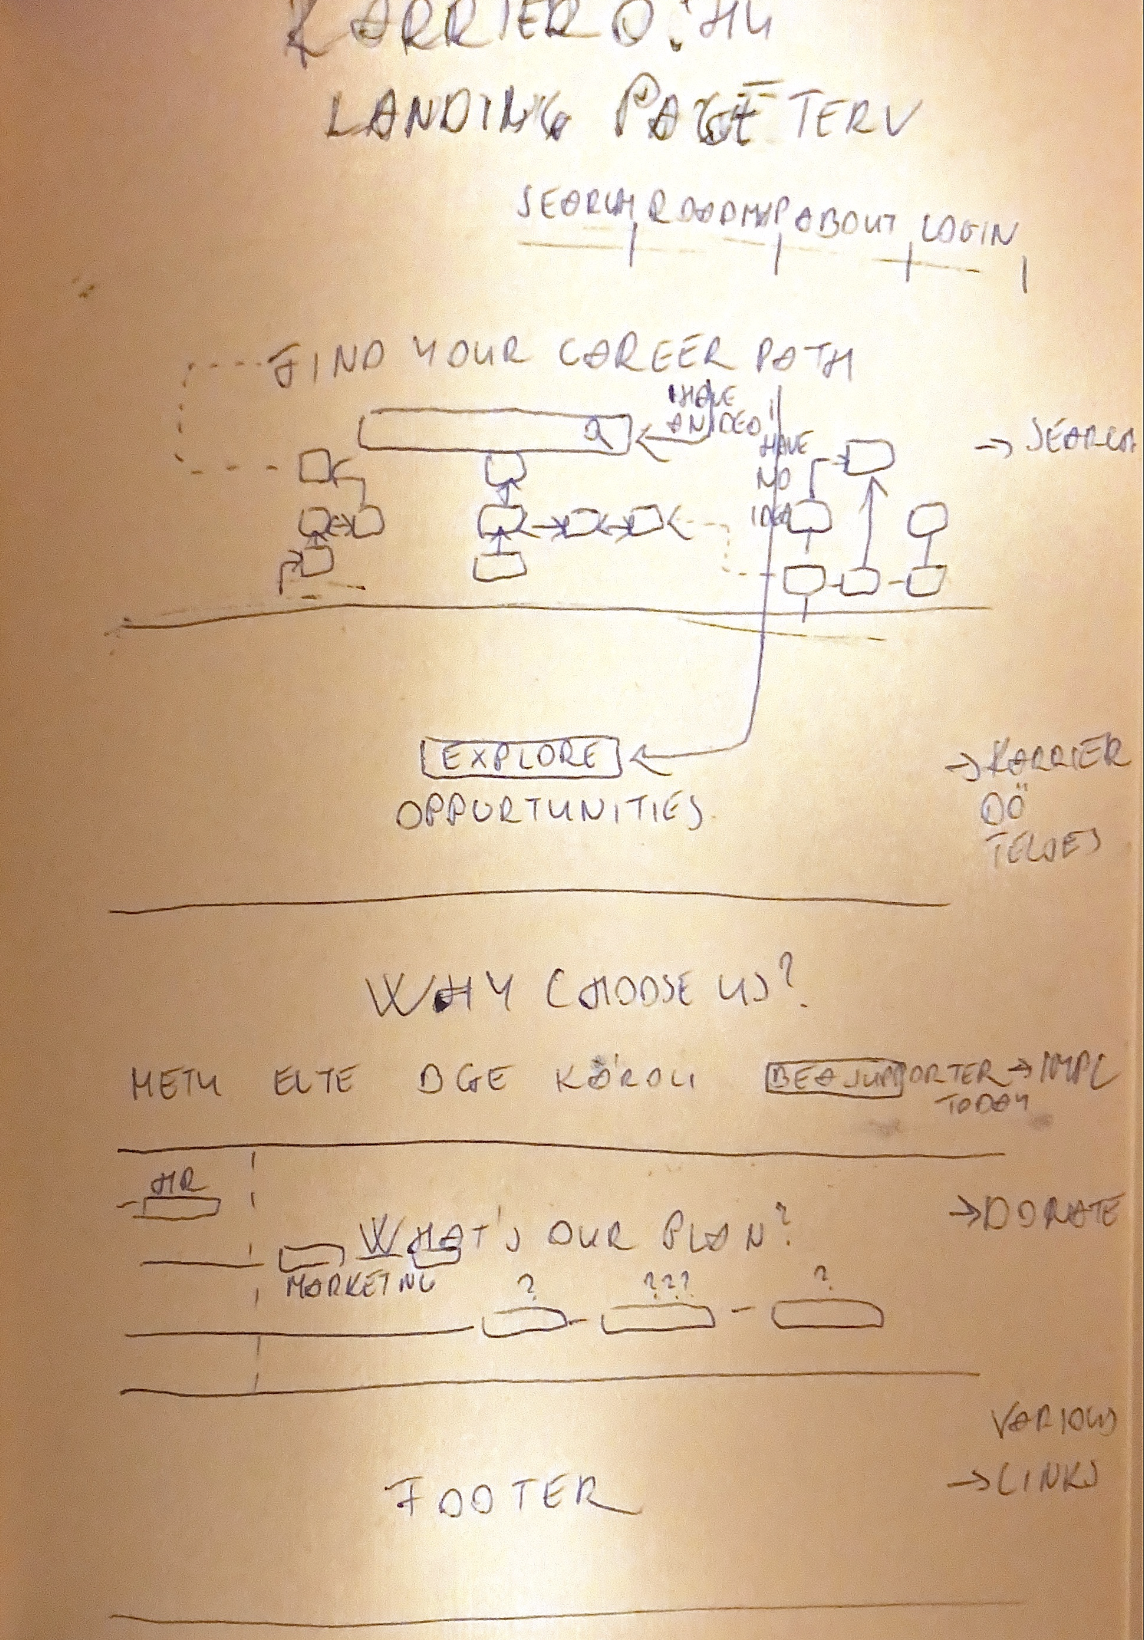 KARRIERO.HU
LANDING PAGE TERV
SEARCH ROADMAP ABOUT LOGIN
FIND YOUR CAREER PATH
I HAVE
AN IDEA
I
HAVE
NO
IDEA
→ SEARCH
EXPLORE
OPPURTUNITIES
→ KARRIER
ÖÖ
TELJES
WHY CHOOSE US?
METU ELTE BGE KÁROLI BE A SUPPORTER → IMPL
TODAY
HR
→ DONATE
WHAT'S OUR PLAN?
MARKETING
? ??? ?
VARIOUS
→ LINKS
FOOTER